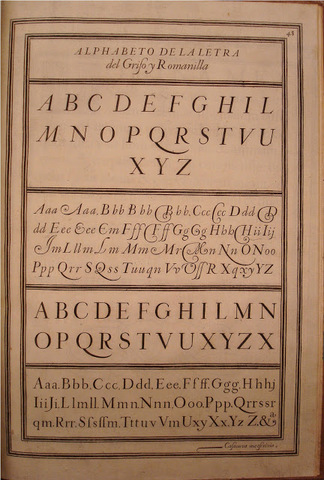 48
ALPHABETO DE LA LETRA
del Grifo y Romanilla
ABCDEFGHIL
MNOPQRSTVU
XYZ
Aaa Aaa. Bbb Bbb Bbb. Ccc Ccc Ddd D
dd Eee Eee Em Fff Fff Gg Gg Hhh Hii Iij.
Jm Lllm L Lm Mm Mr Mn Nn ONoo
Ppp Qrr S Qss Tuuqn Vv Uff R XqxyYZ
ABCDEFGHILMN
OPQRSTVUXYZX
Aaa. Bbb. Ccc. Ddd. Eee. Ffff. Ggg Hhhj
Iiij Ji. Llmll. Mmn. Nnn. Ooo. Ppp. Qrrssr
qm. Rrr. Sfsffm. Tttuv Vm Uxy Xx. Yz Z.&a